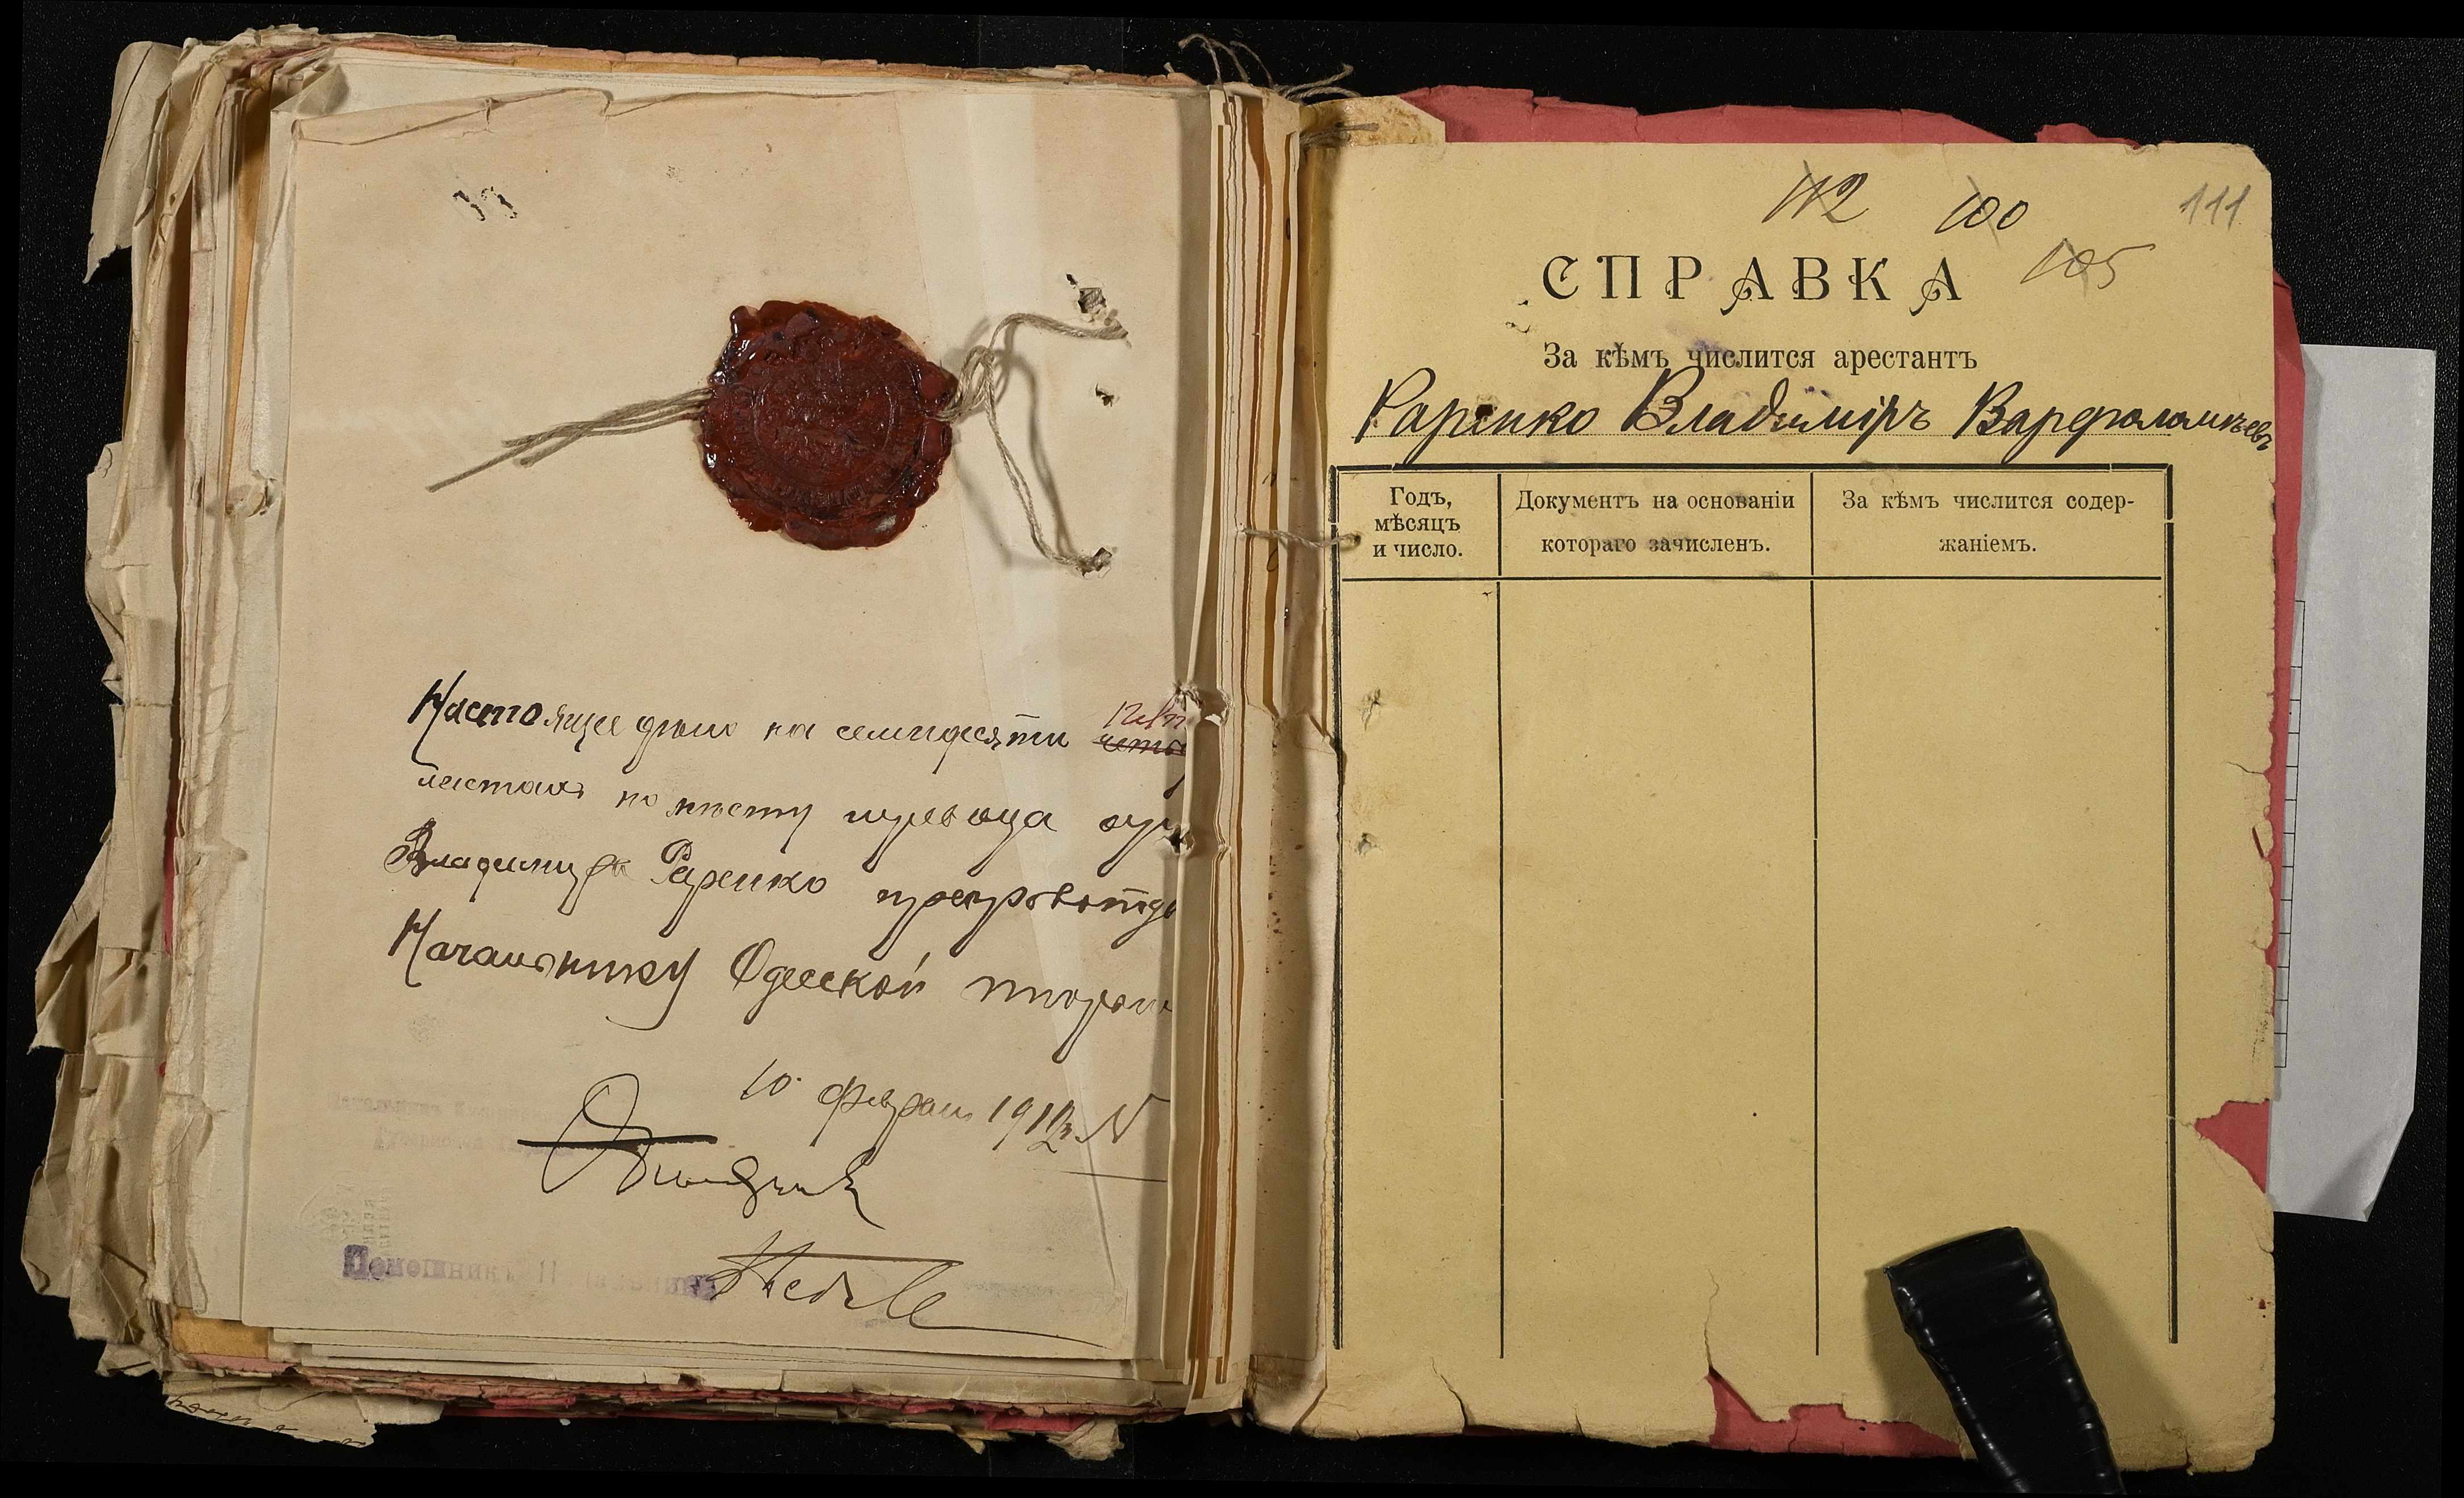 Настоящее дѣло на семидесяти
листахъ по мѣсту перевода
Владиміра Раренко препровожд
Начальнику Одесской тюрьм
10 февраля 1912 г. N
Помощникъ
112 100 111
105
СПРАВКА
За кѣмъ числится арестантъ
Раренко Владиміръ Варфоломѣевъ
Годъ,
мѣсяцъ
и число.
Документъ на основаніи
котораго зачисленъ.
За кѣмъ числится содер-
жаніемъ.